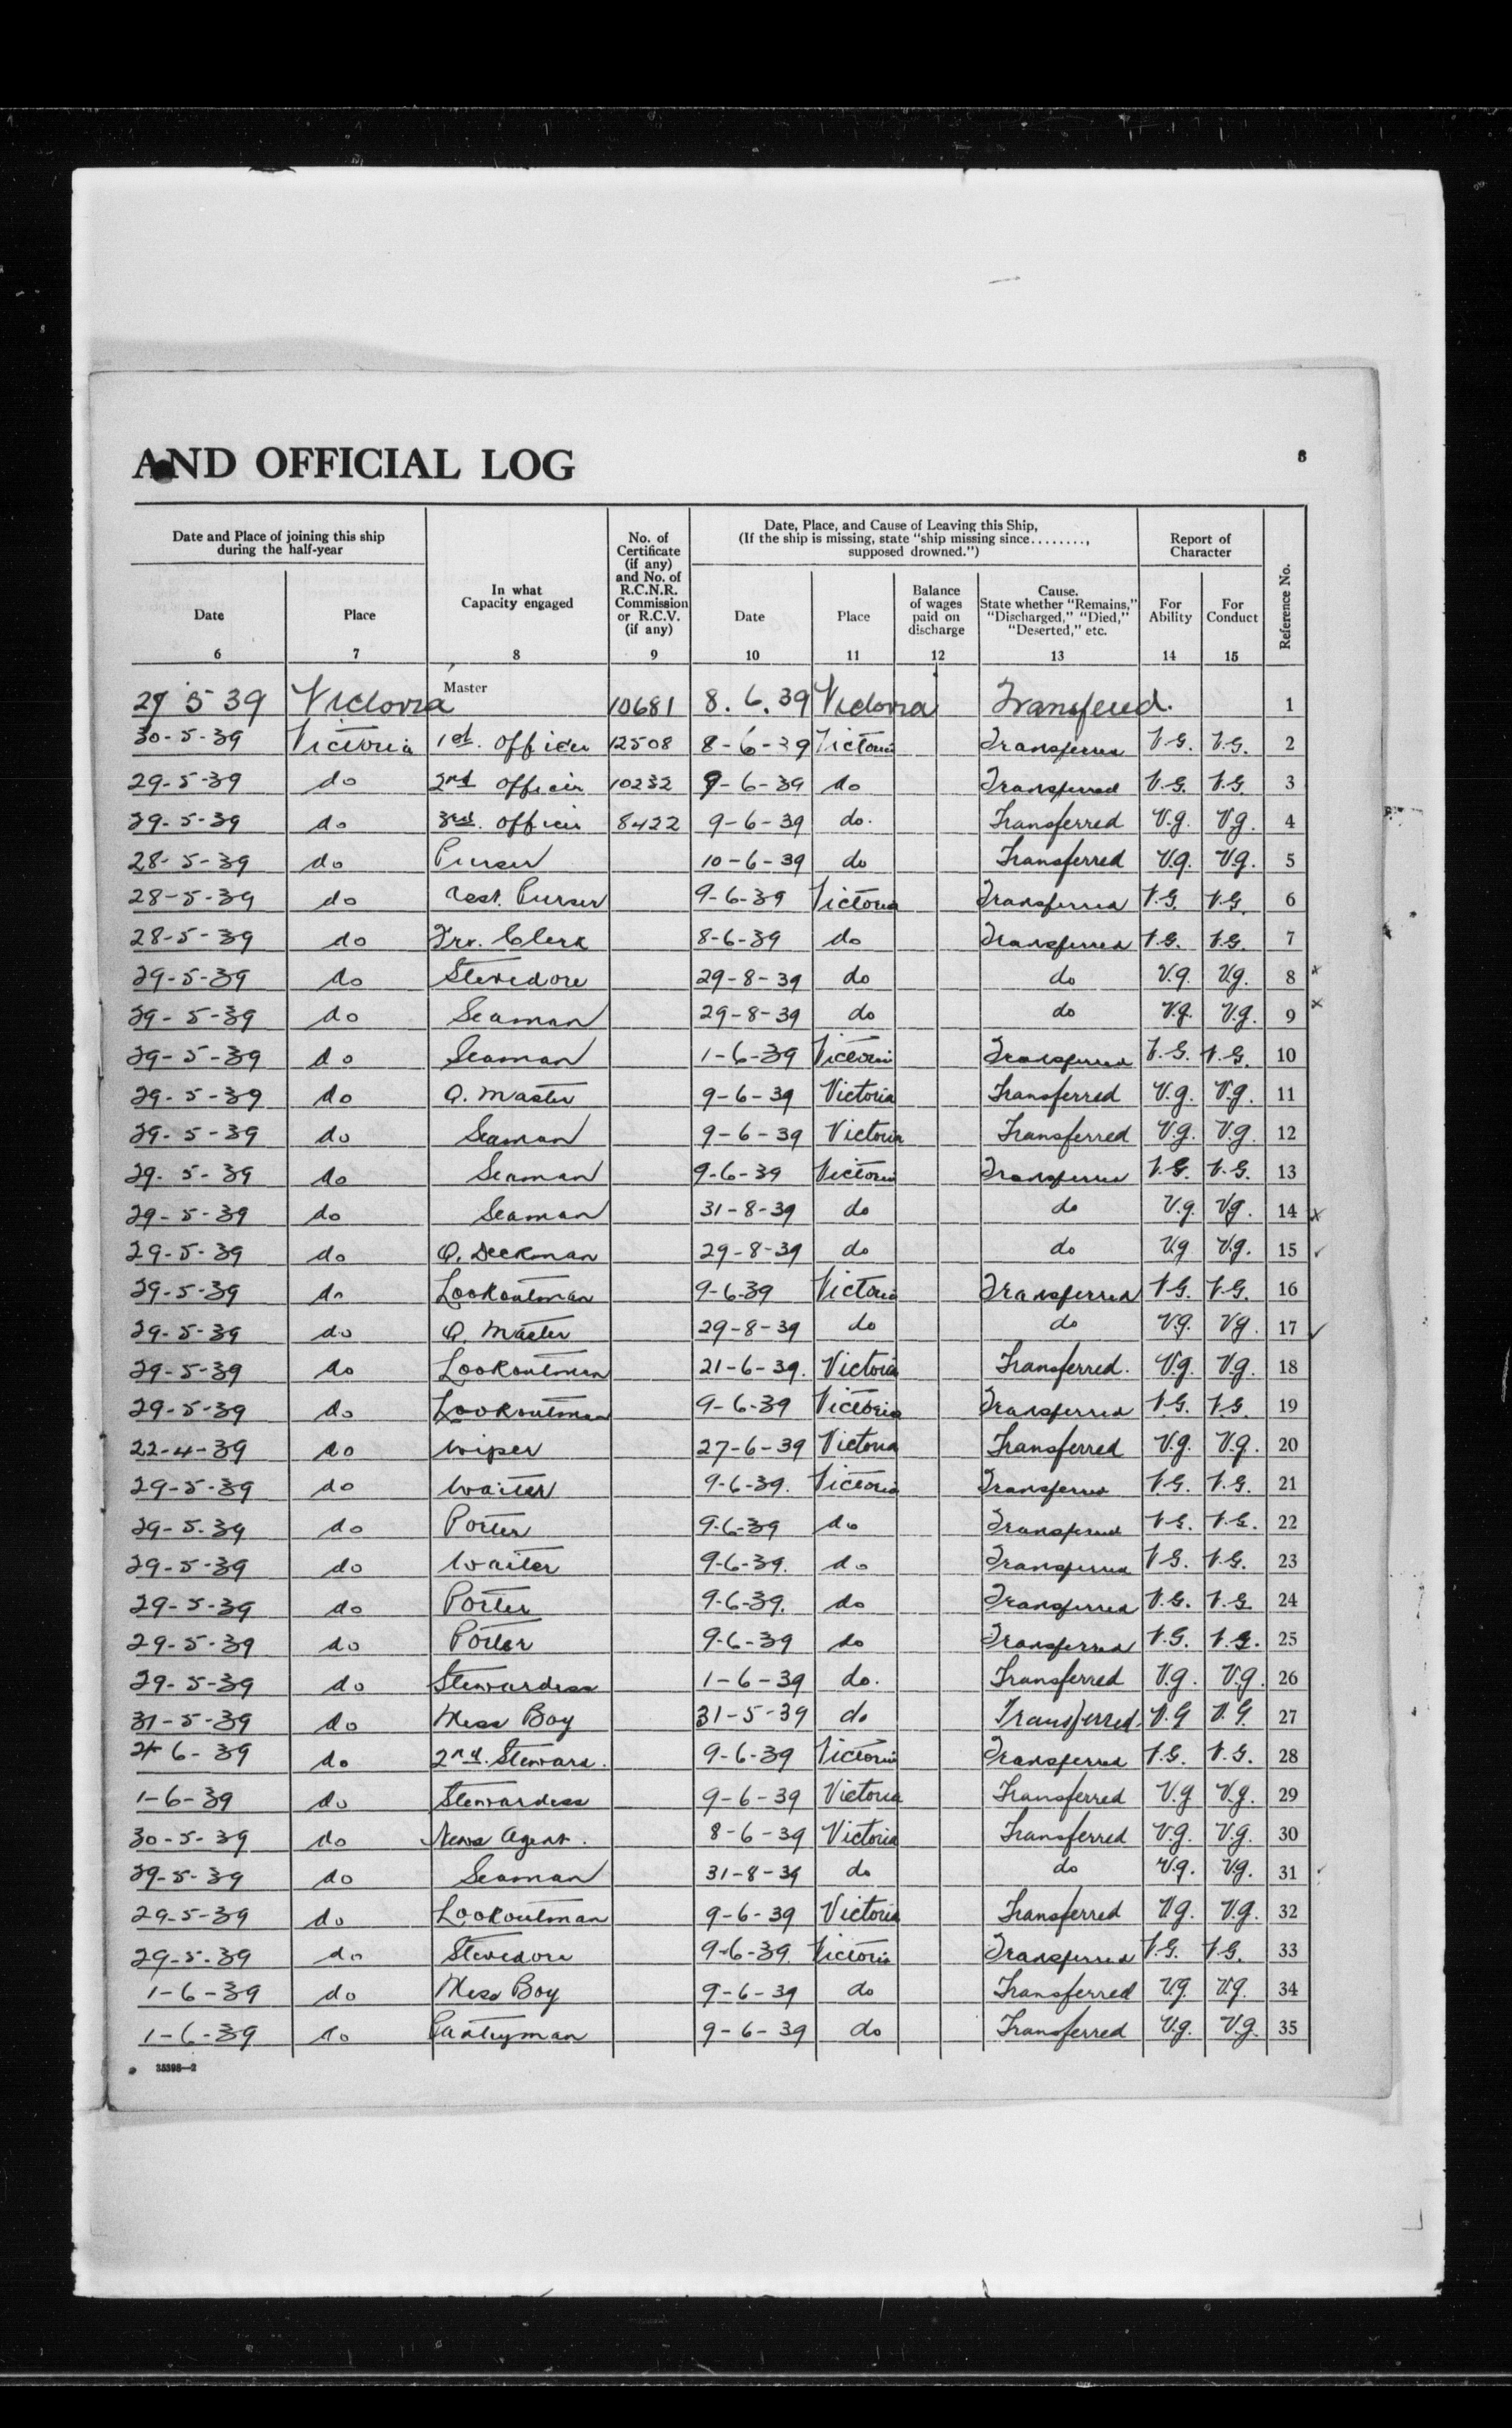 AND OFFICIAL LOG
Date and Place of joining this ship during the half-year
In what Capacity engaged
No. of Certificate (if any) and No. of R.C.N.R. Commission or R.C.V. (if any)
Date, Place, and Cause of Leaving this Ship, (If the ship is missing, state "ship missing since........, supposed drowned.")
Report of Character
Reference No.
Date Place Date Place Balance of wages paid on discharge Cause. State whether "Remains," "Discharged," "Died," "Deserted," etc. For Ability For Conduct
6 7 8 9 10 11 12 13 14 15
27 5 39 Victoria Master 10681 8. 6. 39 Victoria Transfered. 1
30-5-39 Victoria 1st. Officer 12508 8-6-39 Victoria Transferred V.G. V.G. 2
29-5-39 do 2nd Officer 10232 9-6-39 do Transferred V.G. V.G. 3
29-5-39 do 3rd. Officer 8422 9-6-39 do. Transferred V.g. V.g. 4
28-5-39 do Purser 10-6-39 do Transferred V.g. V.g. 5
28-5-39 do Asst. Purser 9-6-39 Victoria Transferred V.G. V.G. 6
28-5-39 do Frt. Clerk 8-6-39 do Transferred V.G. V.G. 7
29-5-39 do Stevedore 29-8-39 do do V.g. V.g. 8 x
29-5-39 do Seaman 29-8-39 do do V.g. V.g. 9 x
29-5-39 do Seaman 1-6-39 Victoria Transferred V.G. V.G. 10
29-5-39 do Q. Master 9-6-39 Victoria Transferred V.g. V.g. 11
29-5-39 do Seaman 9-6-39 Victoria Transferred V.g. V.g. 12
29-5-39 do Seaman 9-6-39 Victoria Transferred V.G. V.G. 13
29-5-39 do Seaman 31-8-39 do do V.g. V.g. 14 x
29-5-39 do O. Deckman 29-8-39 do do V.g V.g. 15 ✓
29-5-39 do Lookoutman 9-6-39 Victoria Transferred V.G. V.G. 16
29-5-39 do Q. Master 29-8-39 do do V.g. V.g. 17 ✓
29-5-39 do Lookoutman 21-6-39. Victoria Transferred. V.g. V.g. 18
29-5-39 do Lookoutman 9-6-39 Victoria Transferred V.G. V.G. 19
22-4-39 do Wiper 27-6-39 Victoria Transferred V.g. V.g. 20
29-5-39 do Waiter 9-6-39. Victoria Transferred V.G. V.G. 21
29-5-39 do Porter 9-6-39 do Transferred V.G. V.G. 22
29-5-39 do Waiter 9-6-39. do Transferred V.G. V.G. 23
29-5-39 do Porter 9-6-39. do Transferred V.G. V.G. 24
29-5-39 do Porter 9-6-39 do Transferred V.G. V.G. 25
29-5-39 do Stewardess 1-6-39 do. Transferred V.g. V.g. 26
31-5-39 do Mess Boy 31-5-39 do Transferred. V.G V.G. 27
6-39 do 2nd. Steward. 9-6-39 Victoria Transferred V.G. V.G. 28
1-6-39 do Stewardess 9-6-39 Victoria Transferred V.g V.g. 29
30-5-39 do News Agent. 8-6-39 Victoria Transferred V.g. V.g. 30
29-5-39 do Seaman 31-8-39 do do V.g. V.g. 31
29-5-39 do Lookoutman 9-6-39 Victoria Transferred V.g. V.g. 32
29-5-39 do Stevedore 9-6-39. Victoria Transferred V.G. V.G. 33
1-6-39 do Mess Boy 9-6-39 do Transferred V.g. V.g. 34
1-6-39 do Pantryman 9-6-39 do Transferred V.g. V.g. 35
35398—2